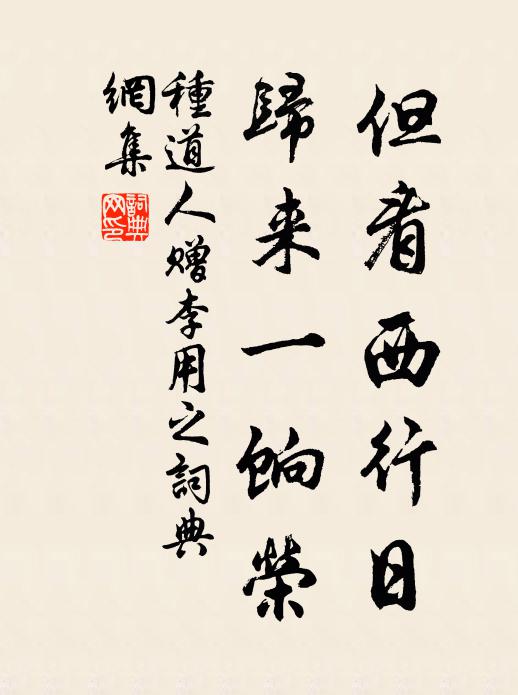 但看西行日
歸来一餉榮
種道人赠李用之詞典
網集
詞典網印